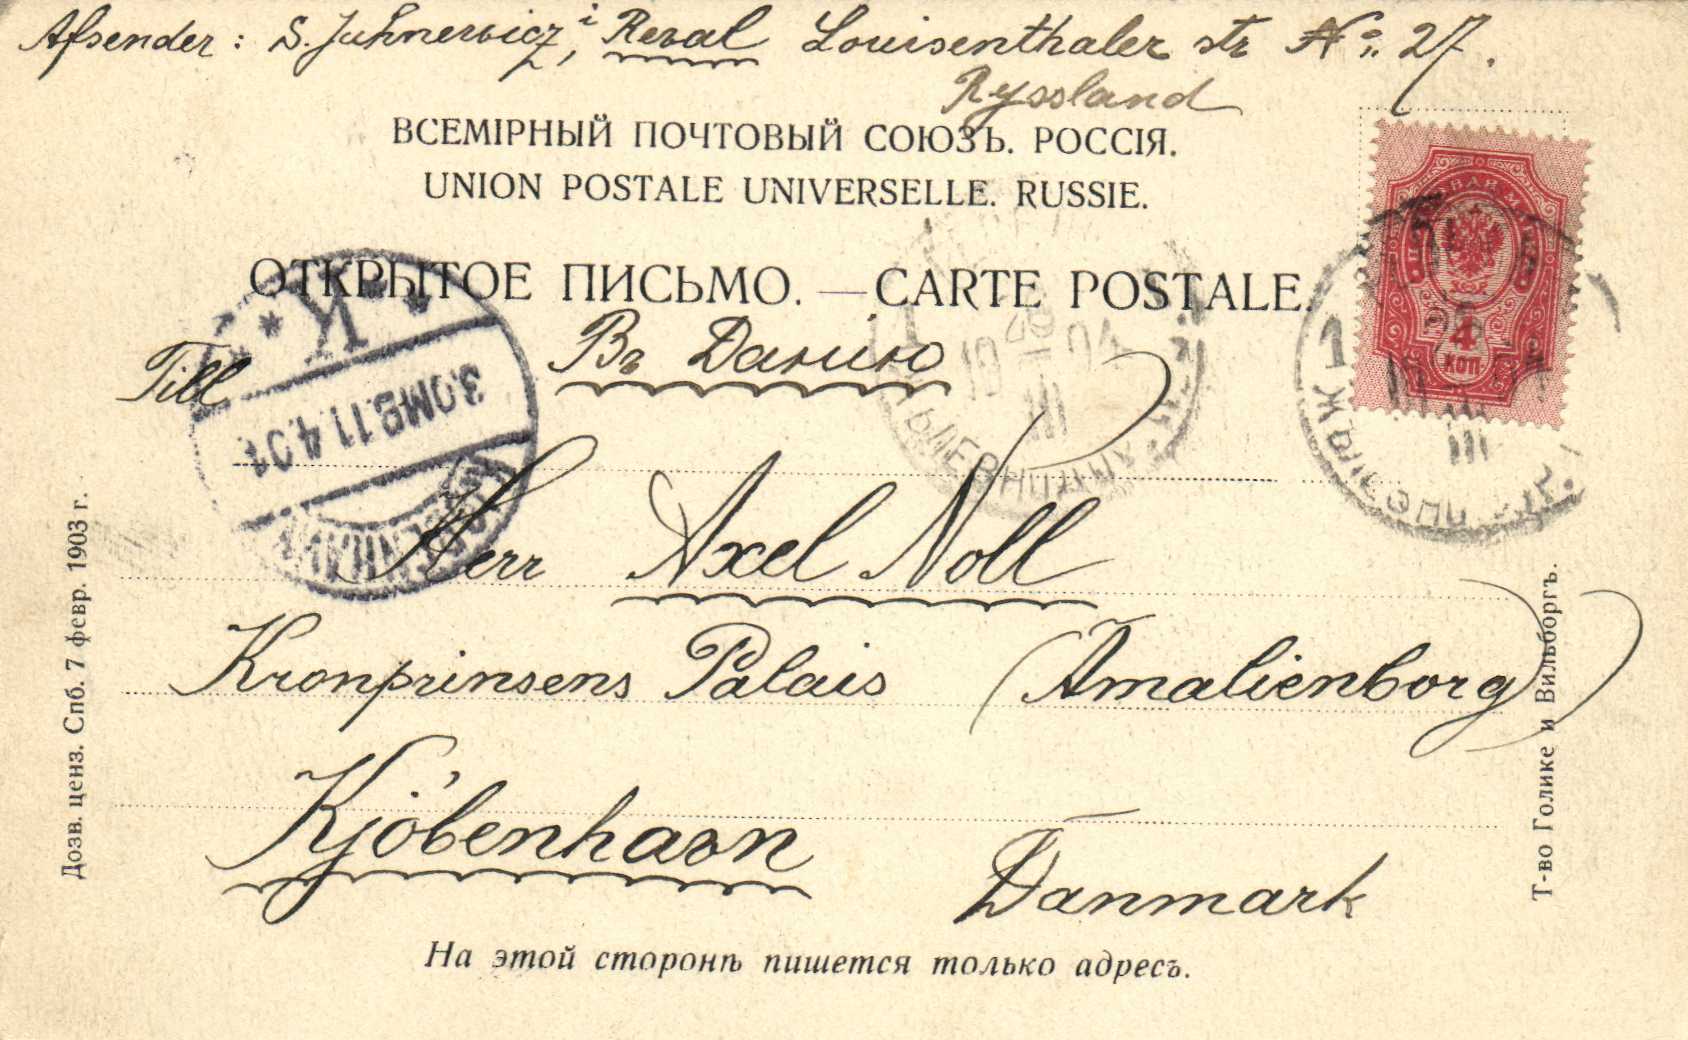 Afsender: S. Juhnewicz, i Reval Louisenthaler str No. 27.
Ryssland
ВСЕМІРНЫЙ ПОЧТОВЫЙ СОЮЗЪ. РОССІЯ.
UNION POSTALE UNIVERSELLE. RUSSIE.
ОТКРЫТОЕ ПИСЬМО. — CARTE POSTALE.
4
КОП
Till
Въ Данию
K
3.OMB. 11.4.04
Herr Axel Noll
Kronprinsens Palais (Amalienborg)
Kjöbenhavn
Danmark
На этой сторонѣ пишется только адресъ.
Дозв. ценз. Спб. 7 февр. 1903 г.
Т-во Голике и Вильборгъ.